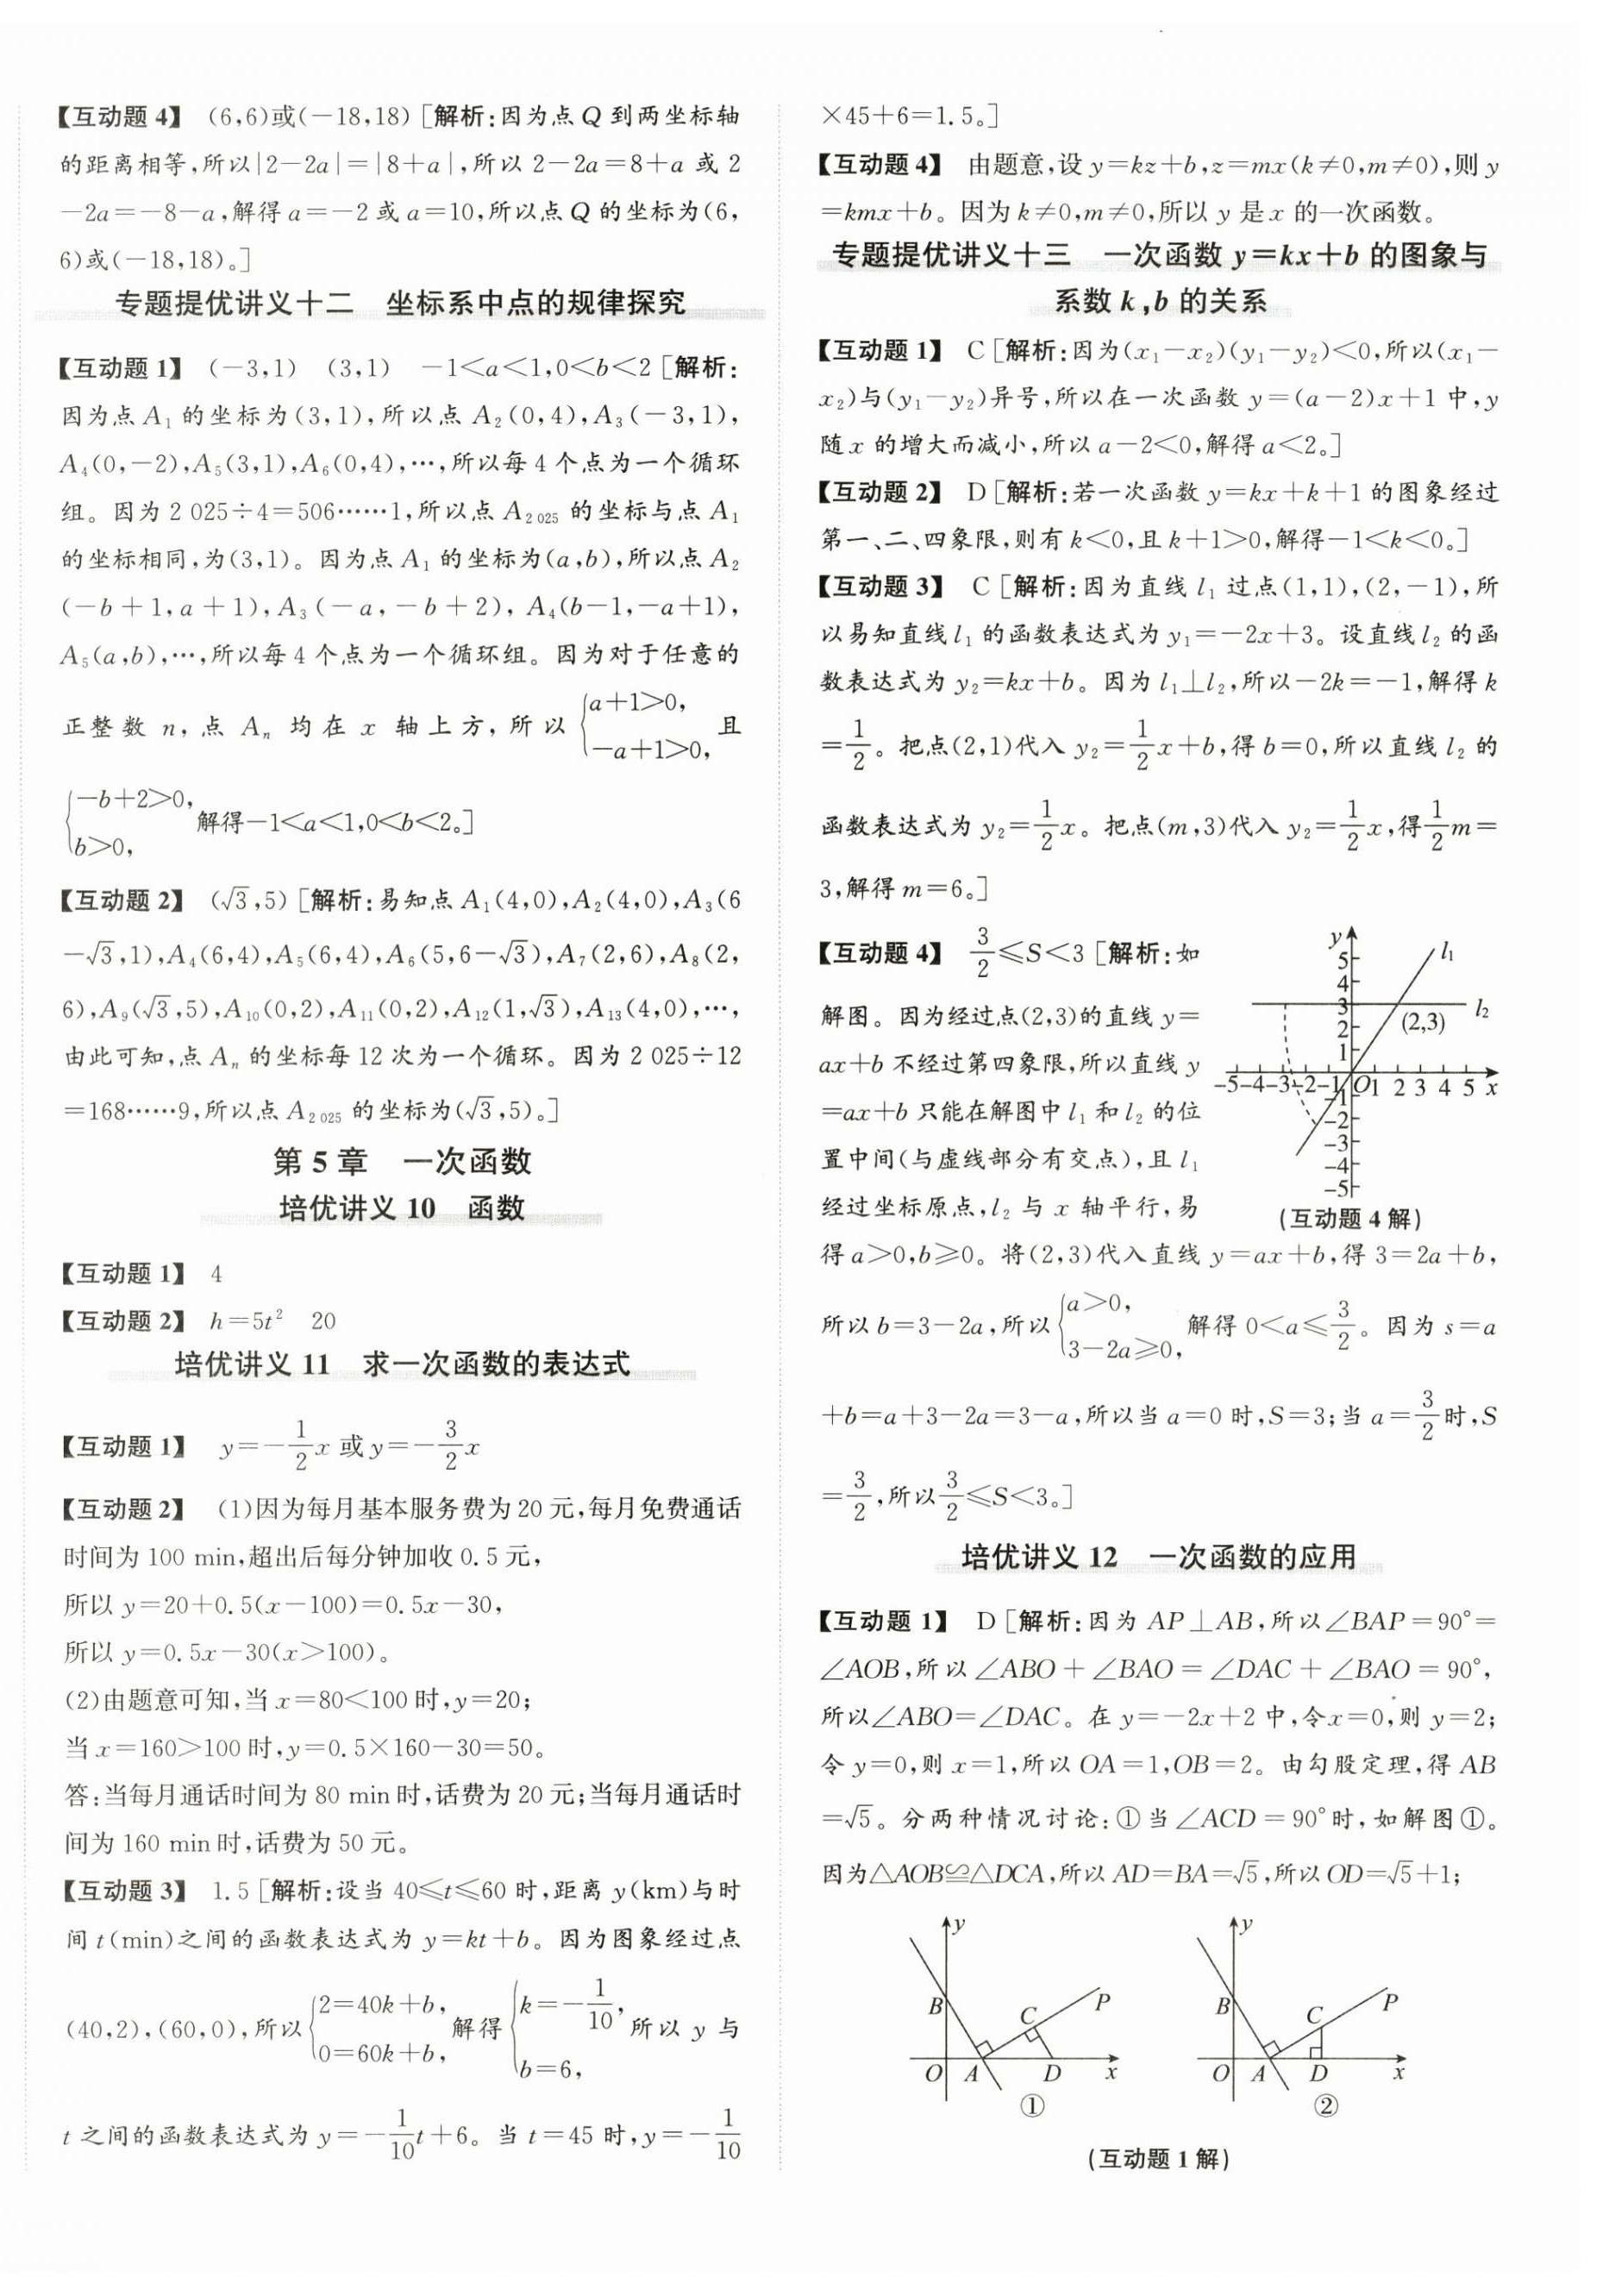 【互动题4】 (6,6)或(－18,18)[解析:因为点Q到两坐标轴
的距离相等,所以|2－2a|=|8+a|,所以2－2a=8+a或2
－2a=－8－a,解得a=－2或a=10,所以点Q的坐标为(6,
6)或(－18,18)。]
专题提优讲义十二 坐标系中点的规律探究
【互动题1】 (－3,1) (3,1) －1<a<1,0<b<2[解析:
因为点A₁的坐标为(3,1),所以点A₂(0,4),A₃(－3,1),
A₄(0,－2),A₅(3,1),A₆(0,4),…,所以每4个点为一个循环
组。因为2 025÷4=506……1,所以点A₂₀₂₅的坐标与点A₁
的坐标相同,为(3,1)。因为点A₁的坐标为(a,b),所以点A₂
(－b+1,a+1),A₃(－a,－b+2),A₄(b－1,－a+1),
A₅(a,b),…,所以每4个点为一个循环组。因为对于任意的
正整数n,点Aₙ均在x轴上方,所以{a+1>0, －a+1>0,且
{－b+2>0, b>0,解得－1<a<1,0<b<2。]
【互动题2】 (√3,5)[解析:易知点A₁(4,0),A₂(4,0),A₃(6
－√3,1),A₄(6,4),A₅(6,4),A₆(5,6－√3),A₇(2,6),A₈(2,
6),A₉(√3,5),A₁₀(0,2),A₁₁(0,2),A₁₂(1,√3),A₁₃(4,0),…,
由此可知,点Aₙ的坐标每12次为一个循环。因为2 025÷12
=168……9,所以点A₂₀₂₅的坐标为(√3,5)。]
第5章 一次函数
培优讲义10 函数
【互动题1】 4
【互动题2】 h=5t² 20
培优讲义11 求一次函数的表达式
【互动题1】 y=－1/2x或y=－3/2x
【互动题2】 (1)因为每月基本服务费为20元,每月免费通话
时间为100 min,超出后每分钟加收0.5元,
所以y=20+0.5(x－100)=0.5x－30,
所以y=0.5x－30(x>100)。
(2)由题意可知,当x=80<100时,y=20;
当x=160>100时,y=0.5×160－30=50。
答:当每月通话时间为80 min时,话费为20元;当每月通话时
间为160 min时,话费为50元。
【互动题3】 1.5[解析:设当40≤t≤60时,距离y(km)与时
间t(min)之间的函数表达式为y=kt+b。因为图象经过点
(40,2),(60,0),所以{2=40k+b, 0=60k+b,解得{k=－1/10, b=6,所以y与
t之间的函数表达式为y=－1/10t+6。当t=45时,y=－1/10
×45+6=1.5。]
【互动题4】 由题意,设y=kz+b,z=mx(k≠0,m≠0),则y
=kmx+b。因为k≠0,m≠0,所以y是x的一次函数。
专题提优讲义十三 一次函数y=kx+b的图象与
系数k,b的关系
【互动题1】 C[解析:因为(x₁－x₂)(y₁－y₂)<0,所以(x₁－
x₂)与(y₁－y₂)异号,所以在一次函数y=(a－2)x+1中,y
随x的增大而减小,所以a－2<0,解得a<2。]
【互动题2】 D[解析:若一次函数y=kx+k+1的图象经过
第一、二、四象限,则有k<0,且k+1>0,解得－1<k<0。]
【互动题3】 C[解析:因为直线l₁过点(1,1),(2,－1),所
以易知直线l₁的函数表达式为y₁=－2x+3。设直线l₂的函
数表达式为y₂=kx+b。因为l₁⊥l₂,所以－2k=－1,解得k
=1/2。把点(2,1)代入y₂=1/2x+b,得b=0,所以直线l₂的
函数表达式为y₂=1/2x。把点(m,3)代入y₂=1/2x,得1/2m=
3,解得m=6。]
【互动题4】 3/2≤S<3[解析:如
解图。因为经过点(2,3)的直线y=
ax+b不经过第四象限,所以直线y
=ax+b只能在解图中l₁和l₂的位
置中间(与虚线部分有交点),且l₁
经过坐标原点,l₂与x轴平行,易
y
5
4
3
2
1
l₁
l₂
(2,3)
-5-4-3-2-1 O 1 2 3 4 5 x
-1
-2
-3
-4
-5
(互动题4解)
得a>0,b≥0。将(2,3)代入直线y=ax+b,得3=2a+b,
所以b=3－2a,所以{a>0, 3－2a≥0,解得0<a≤3/2。因为s=a
+b=a+3－2a=3－a,所以当a=0时,S=3;当a=3/2时,S
=3/2,所以3/2≤S<3。]
培优讲义12 一次函数的应用
【互动题1】 D[解析:因为AP⊥AB,所以∠BAP=90°=
∠AOB,所以∠ABO+∠BAO=∠DAC+∠BAO=90°,
所以∠ABO=∠DAC。在y=－2x+2中,令x=0,则y=2;
令y=0,则x=1,所以OA=1,OB=2。由勾股定理,得AB
=√5。分两种情况讨论:①当∠ACD=90°时,如解图①。
因为△AOB≌△DCA,所以AD=BA=√5,所以OD=√5+1;
y B C P O A D x
①
y B C P O A D x
②
(互动题1解)